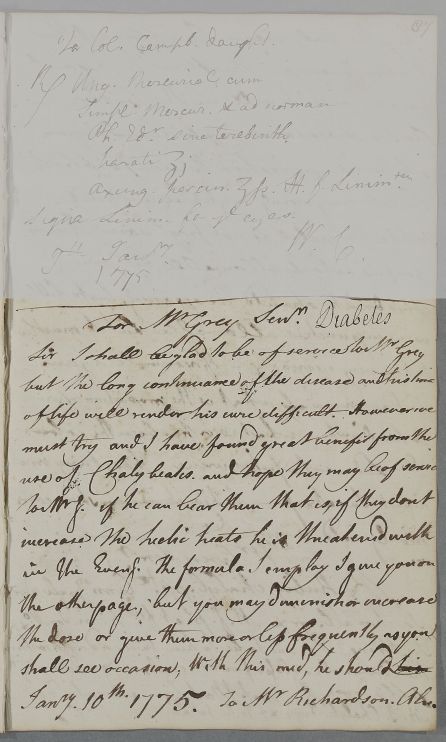 87
For Col. Campb. Daught.
℞ Ung. Mercurial cum
Simpl. Mercur. & ad normam
Ph. Edr. sine terebinth.
parati ʒj
axung. porcin. ℥ss. M. f. Linim.tum
signa Linim. for ye eyes.
W. C.
Janry.
1775
For Mr Grey Senr. Diabetes
Sir I shall be glad to be of service to Mr Grey
but the long continuance of the disease and his time
of life will render his cure difficult. However we
must try and I have found great benefit from the
use of Chalybeats. and hope they may be of service
to Mr G. if he can bear them that is, if they dont
increase the hectic heats he is threatened with
in the Eveng. The formula I employ I give you on
the other page, but you may diminish or increase
the dose or give them more or less frequently as you
shall see occasion, With this med, he should his
Janry. 10th. 1775. To Mr Richardson.